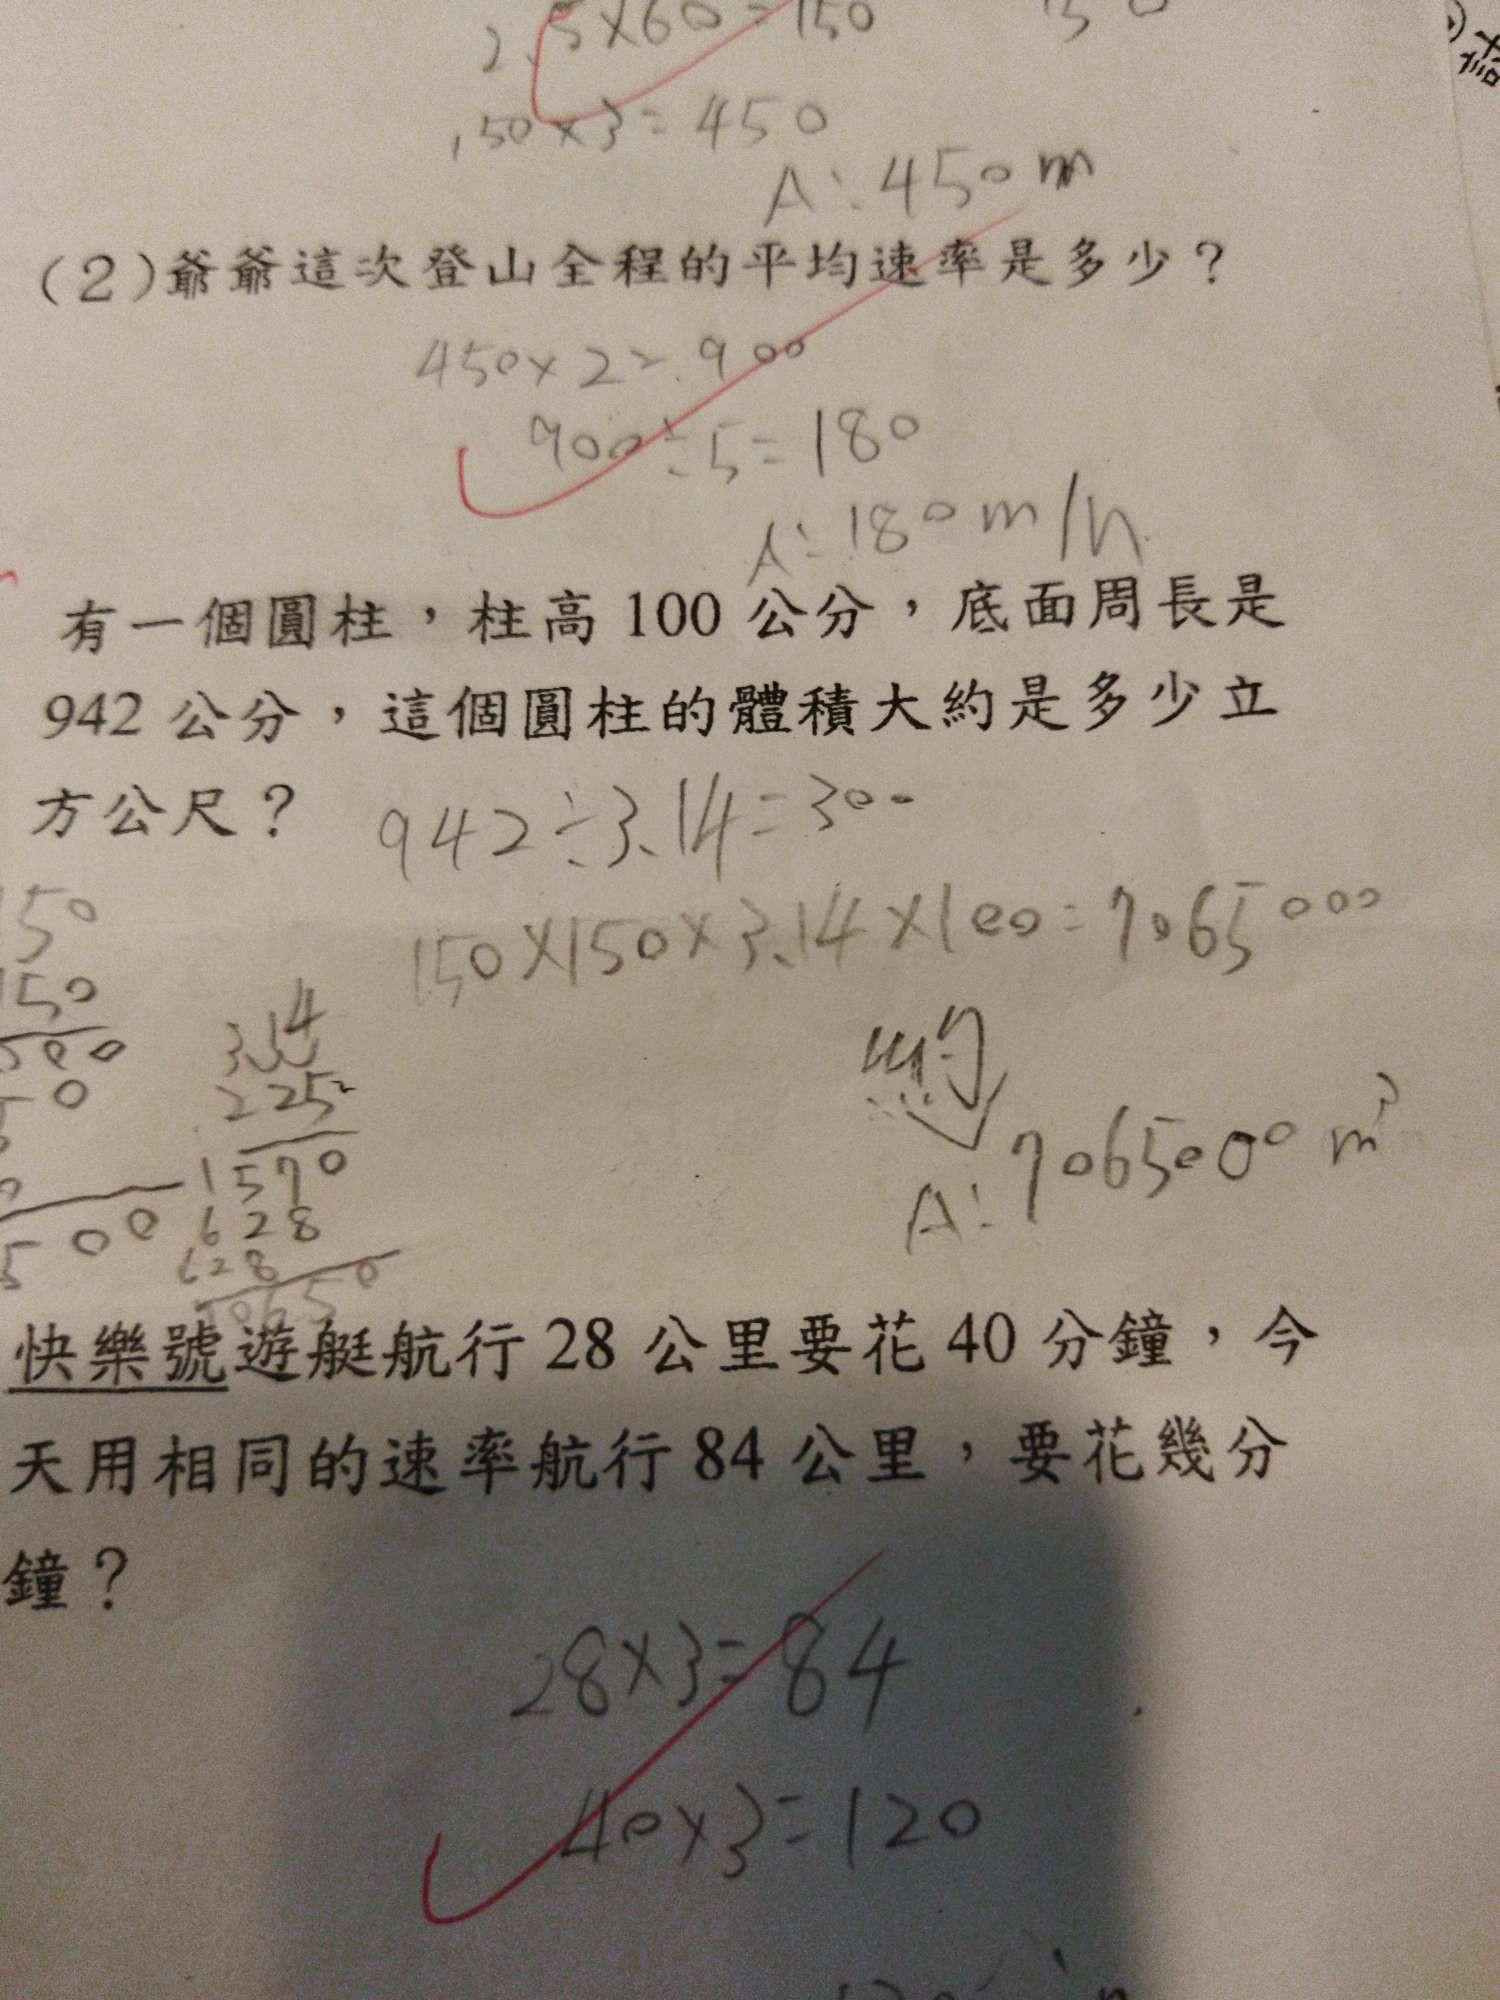 2.5×60=150
150×3=450
A:450m
(2)爺爺這次登山全程的平均速率是多少？
450×2=900
900÷5=180
A:180m/h
有一個圓柱，柱高100公分，底面周長是
942公分，這個圓柱的體積大約是多少立
方公尺？
942÷3.14=300
150×150×3.14×100=7065000
約
A:7065000m³
150
150
3.14
225
1570
628
628
快樂號遊艇航行28公里要花40分鐘，今
天用相同的速率航行84公里，要花幾分
鐘？
28×3=84
40×3=120